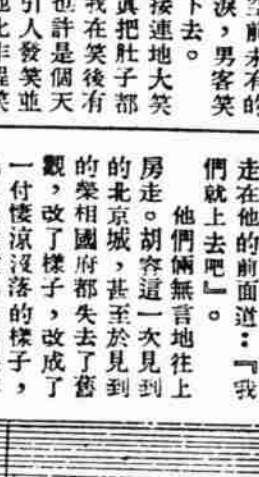 空前未有的
淚，男客笑
下去。
接連地大笑
眞把肚子都
我在笑後有
也許是個天
引人發笑並
走在他的前面道：『我
們就上去吧』。
他們倆無言地往上
房走。胡容這一次見到
的北京城，甚至於見到
的榮相國府都失去了舊
觀，改了樣子，改成了
一付悽涼沒落的樣子，